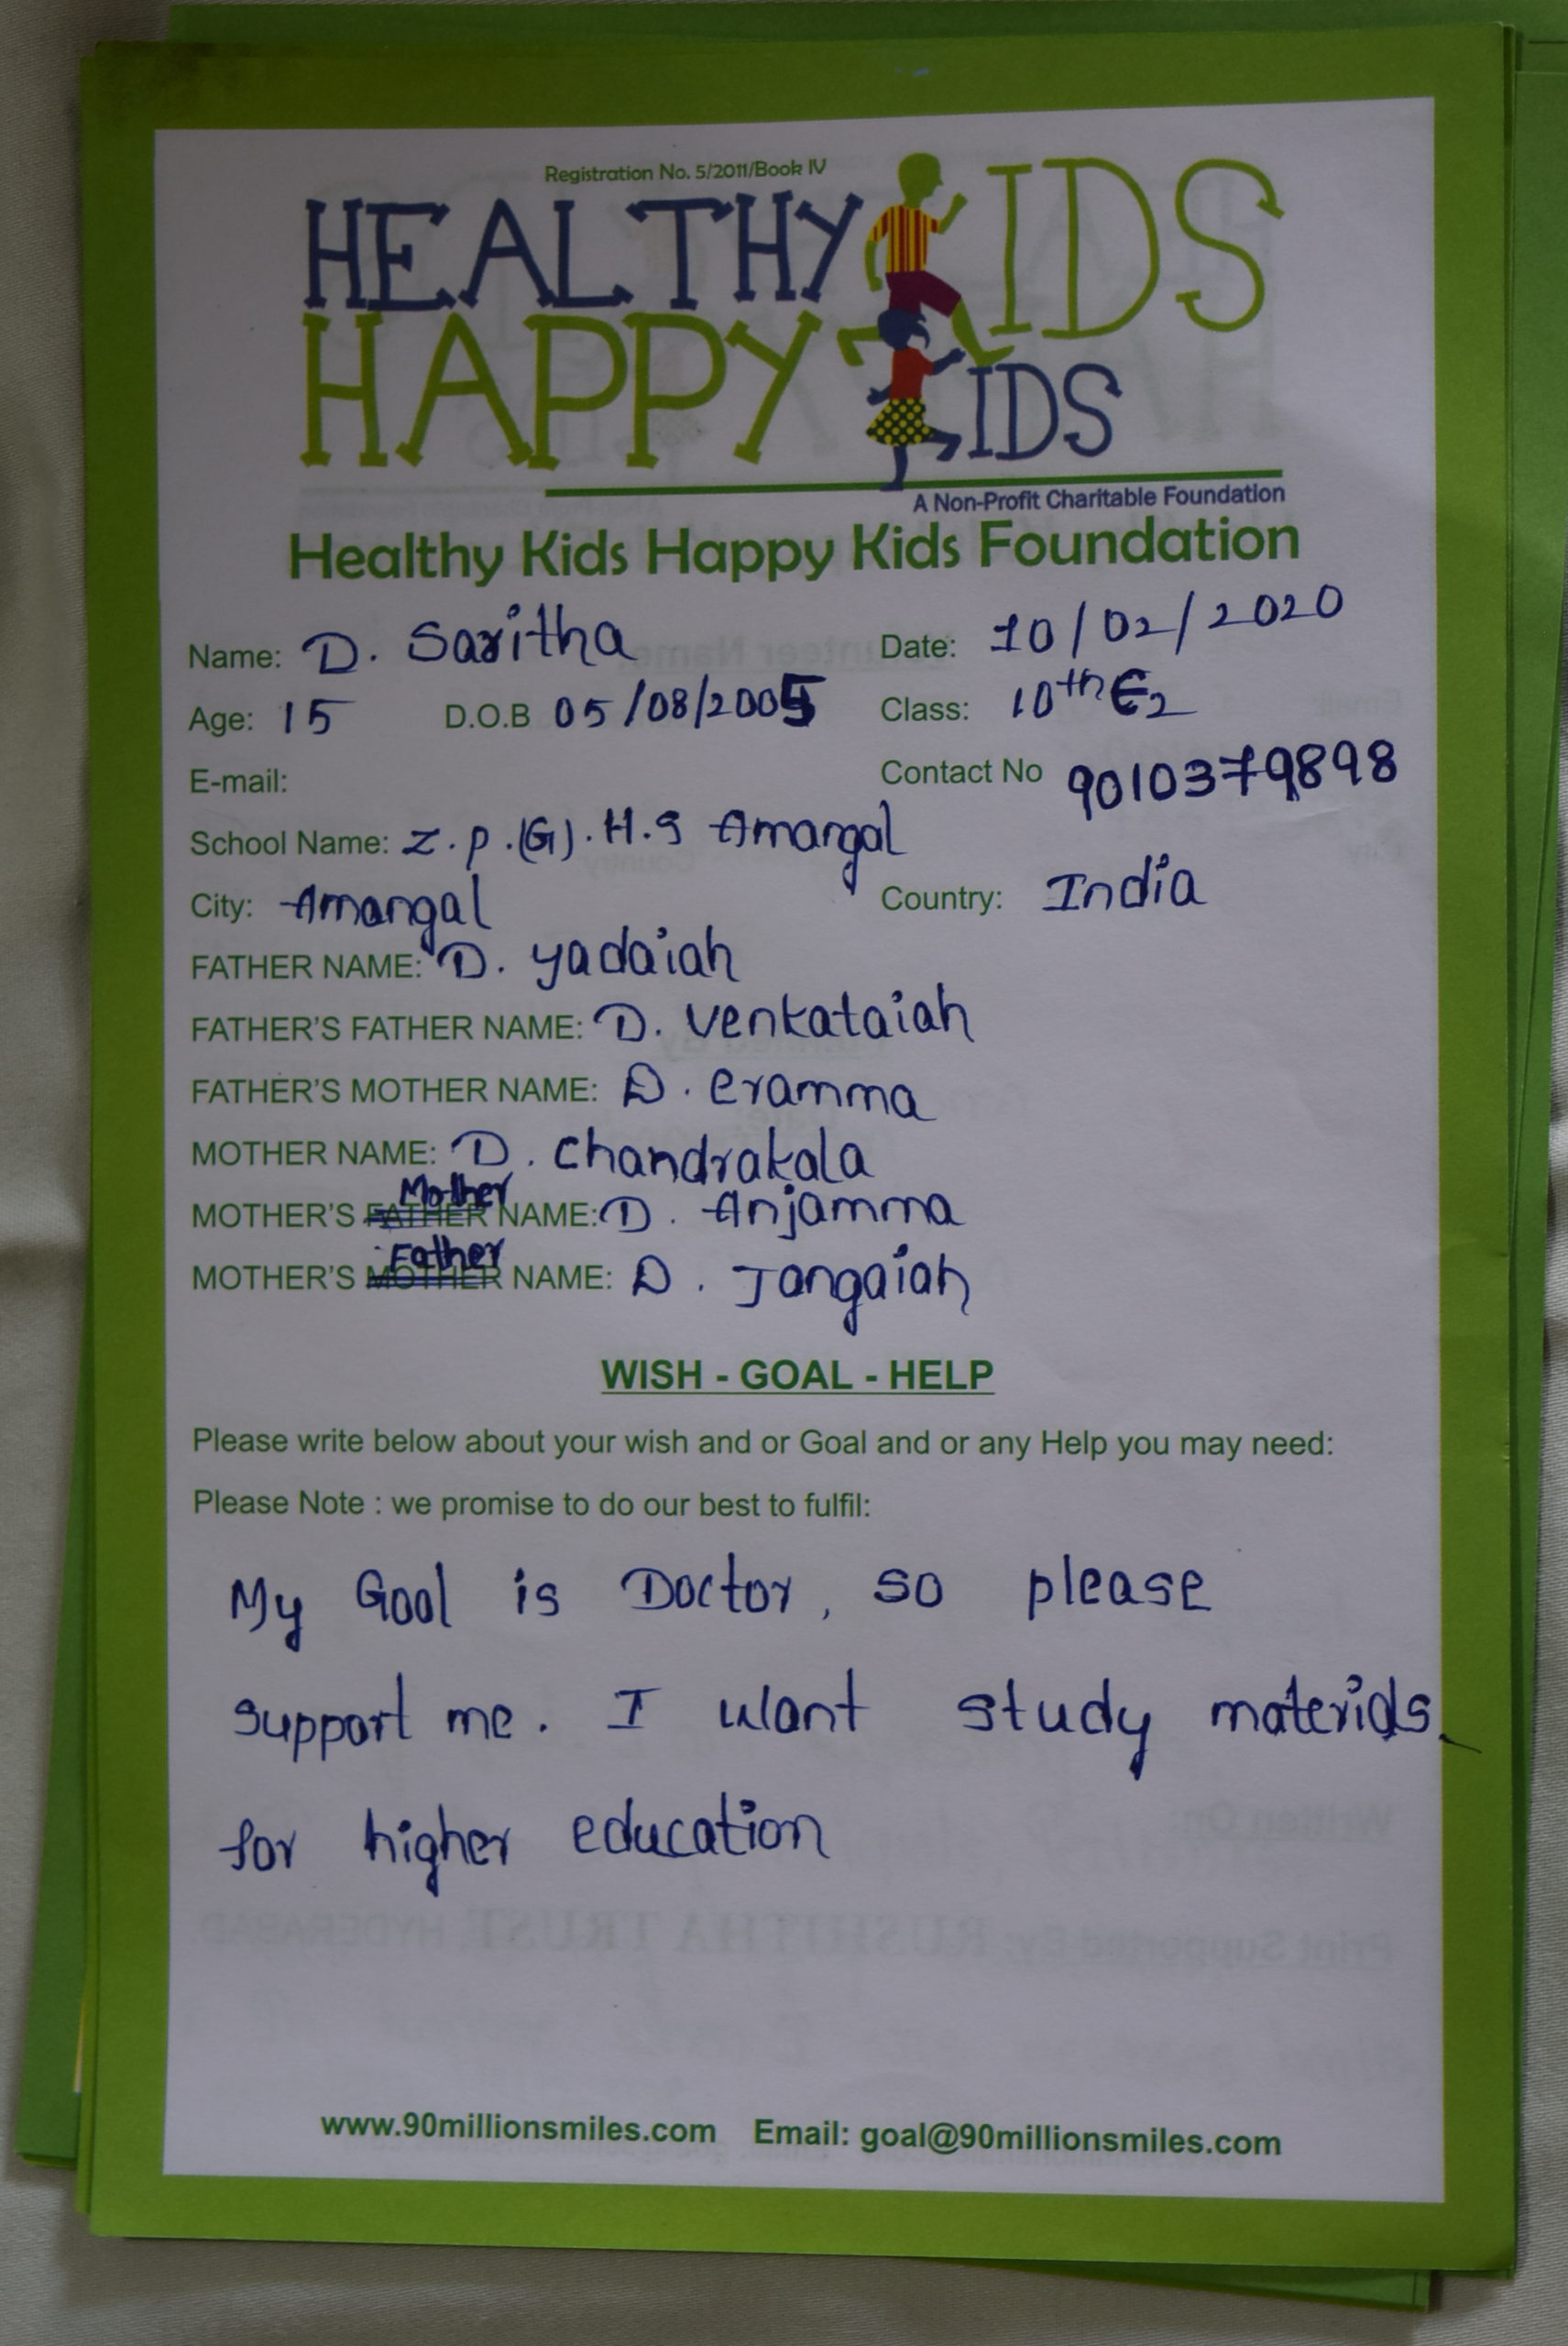 Registration No. 5/2011/Book IV
HEALTHY KIDS
HAPPY KIDS
A Non-Profit Charitable Foundation
Healthy Kids Happy Kids Foundation
Name: D. Saritha Date: 10/02/2020
Age: 15 D.O.B 05/08/2005 Class: 10th E2
E-mail: Contact No 9010379898
School Name: Z.P.(G).H.S Amangal
City: Amangal Country: India
FATHER NAME: D. yadaiah
FATHER'S FATHER NAME: D. venkataiah
FATHER'S MOTHER NAME: D. eramma
MOTHER NAME: D. chandrakala
Mother
MOTHER'S FATHER NAME: D. Anjamma
Father
MOTHER'S MOTHER NAME: D. Jangaiah
WISH - GOAL - HELP
Please write below about your wish and or Goal and or any Help you may need:
Please Note : we promise to do our best to fulfil:
My Gool is Doctor, so please
support me. I want study materials
for higher education
www.90millionsmiles.com Email: goal@90millionsmiles.com